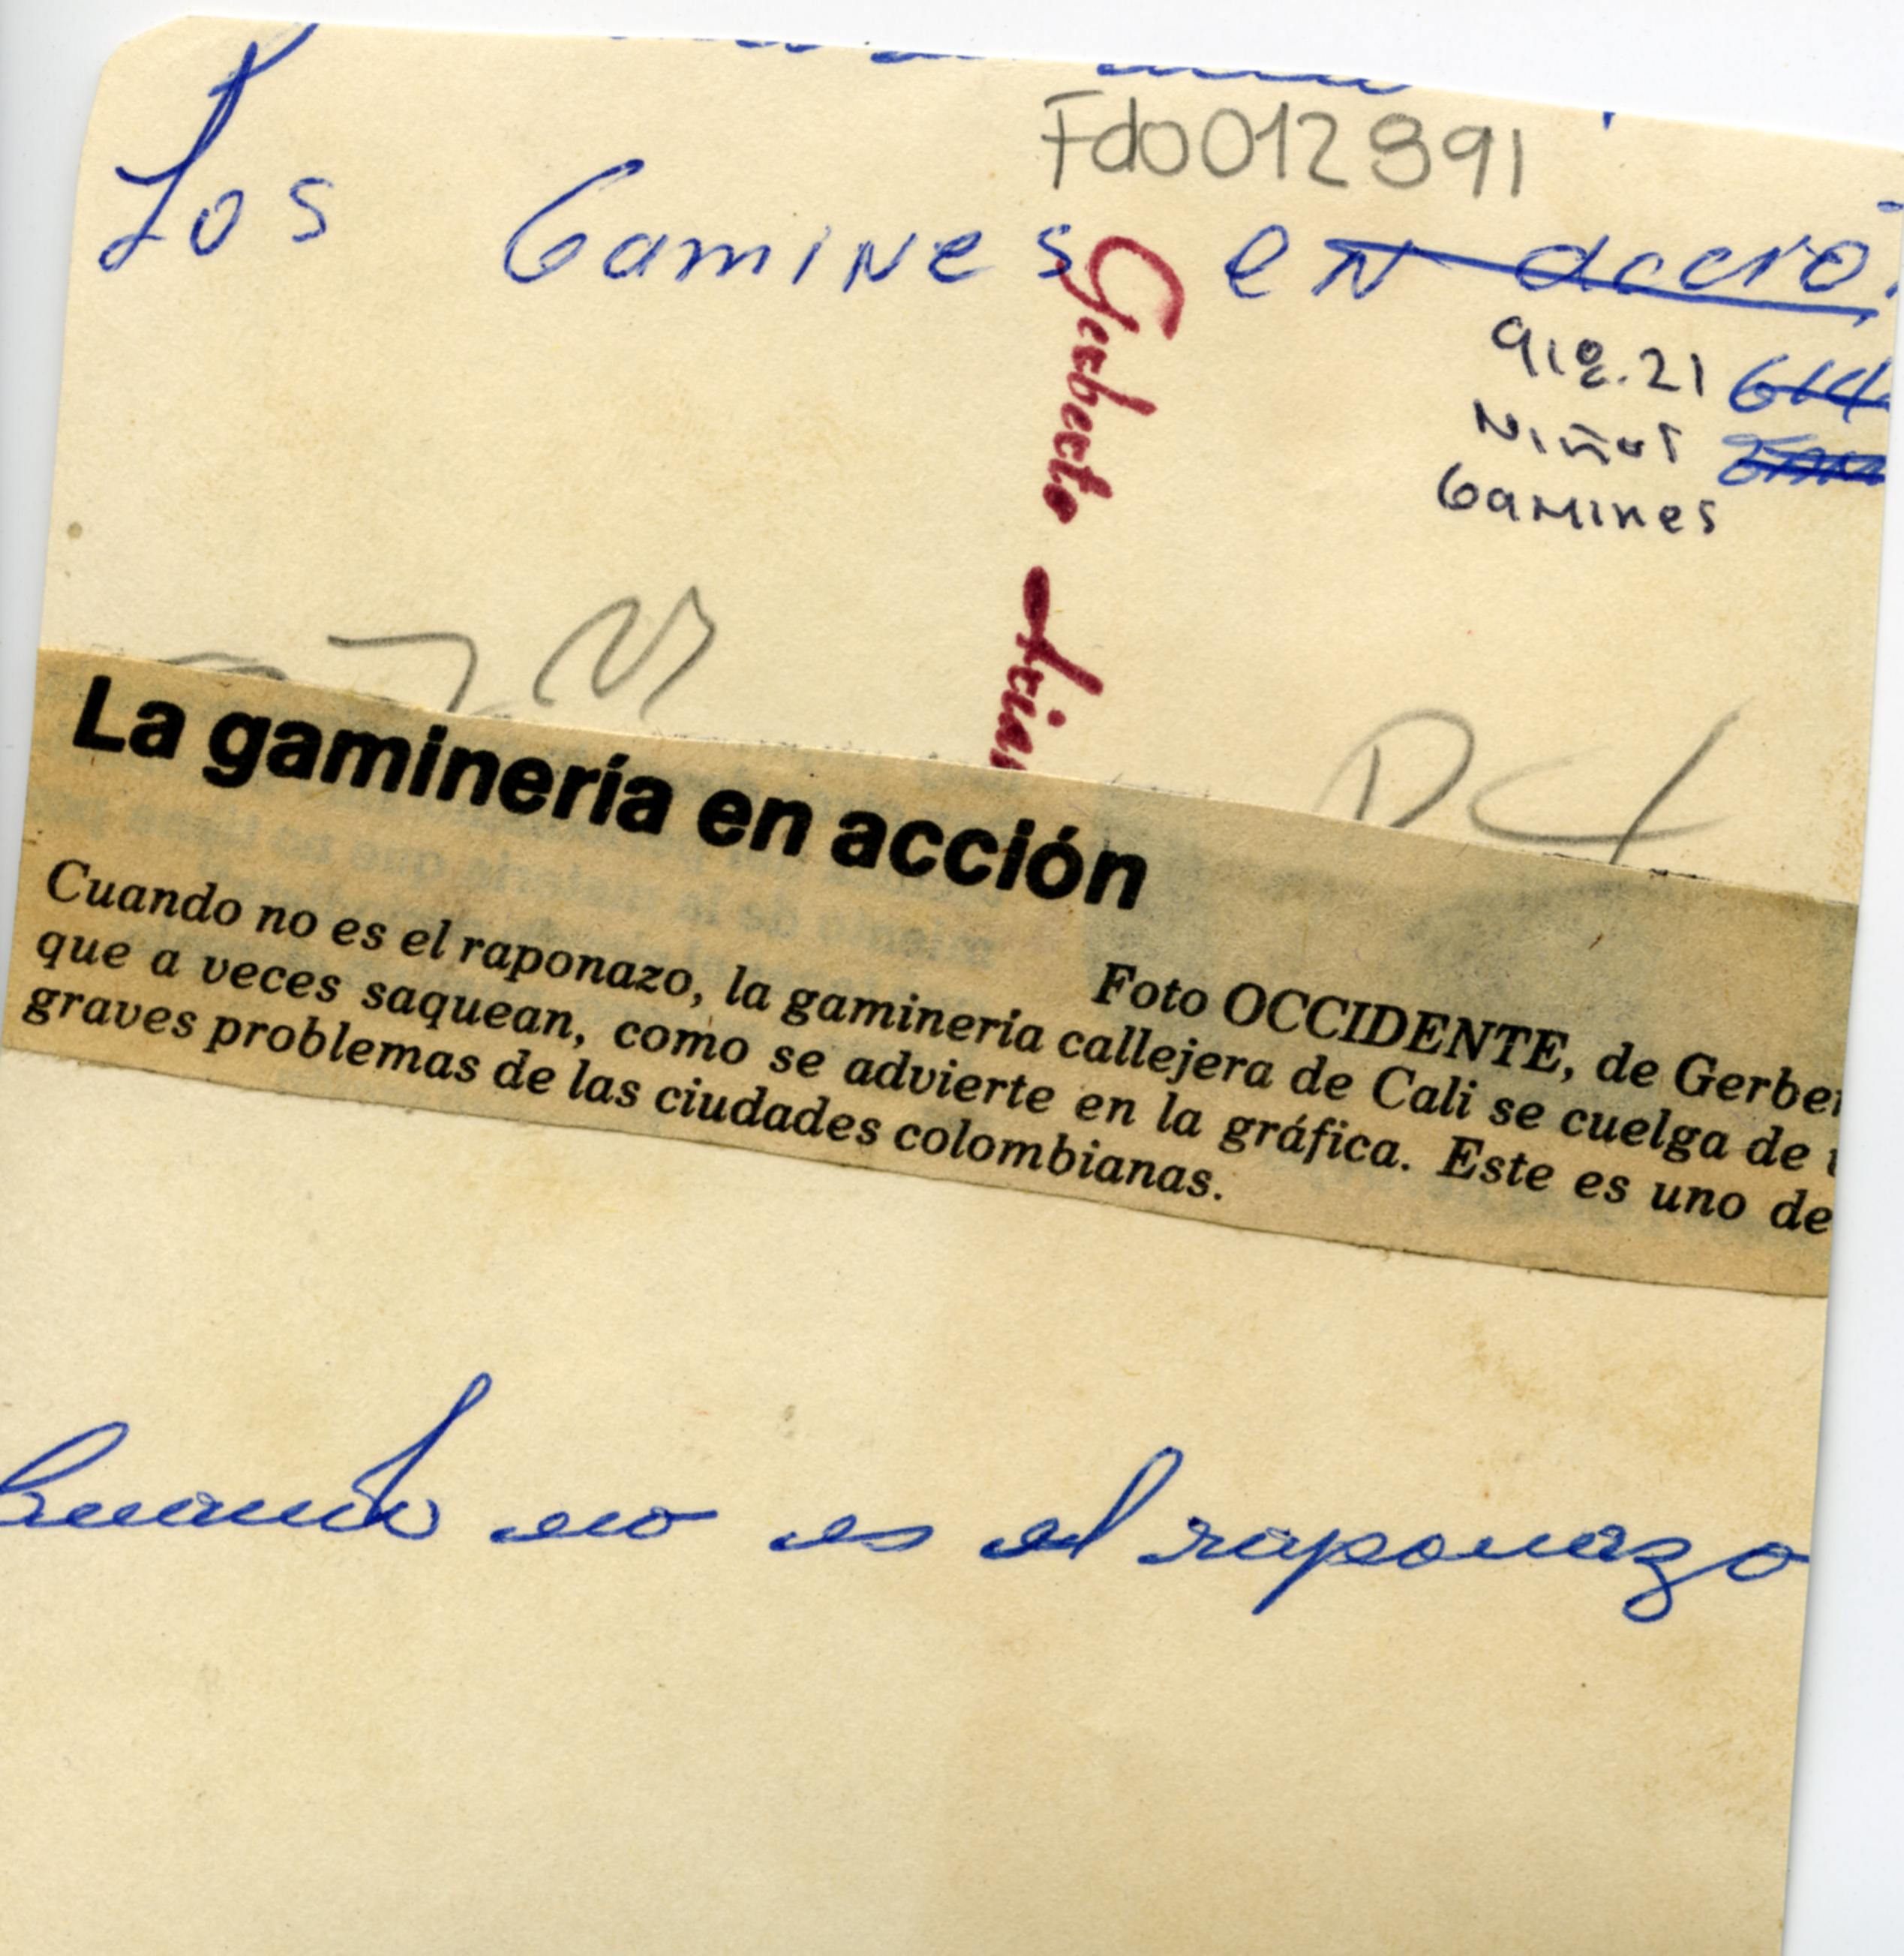 Fdo012891
Los Gamines en acció
Gerberto
912.21
Niños
Gamines
DC
La gaminería en acción
Foto OCCIDENTE, de Gerber
Cuando no es el raponazo, la gaminería callejera de Cali se cuelga de
que a veces saquean, como se advierte en la gráfica. Este es uno de
graves problemas de las ciudades colombianas.
Cuando no es el raponazo